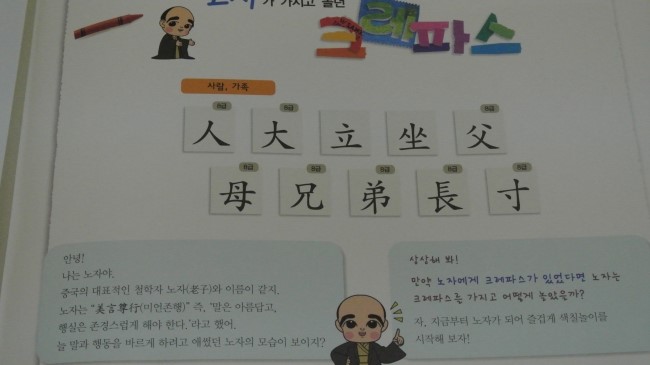 노자가 가지고 놀던
크레파스
사람, 가족
8급 8급 8급
人 大 立 坐 父
8급 8급 8급 8급 8급
母 兄 弟 長 寸
안녕!
나는 노자야.
중국의 대표적인 철학자 노자(老子)와 이름이 같지.
노자는 "美言尊行(미언존행)" 즉, '말은 아름답고,
행실은 존경스럽게 해야 한다.'라고 했어.
늘 말과 행동을 바르게 하려고 애썼던 노자의 모습이 보이지?
상상해 봐!
만약 노자에게 크레파스가 있었다면 노자는
크레파스를 가지고 어떻게 놀았을까?
자, 지금부터 노자가 되어 즐겁게 색칠놀이를
시작해 보자!